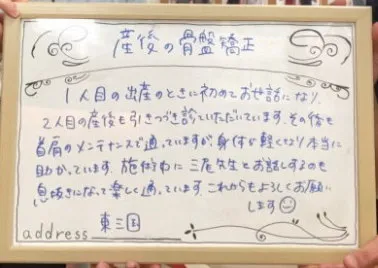 産後の骨盤矯正
1人目の出産のときに初めてお世話になり、
2人目の産後も引きつづき診ていただいています。その後も
首肩のメンテナンスで通っていますが身体が軽くなり本当に
助かっています。施術中に三尾先生とお話しするのも
息抜きになって楽しく通っています。これからもよろしくお願い
します
address 東三国